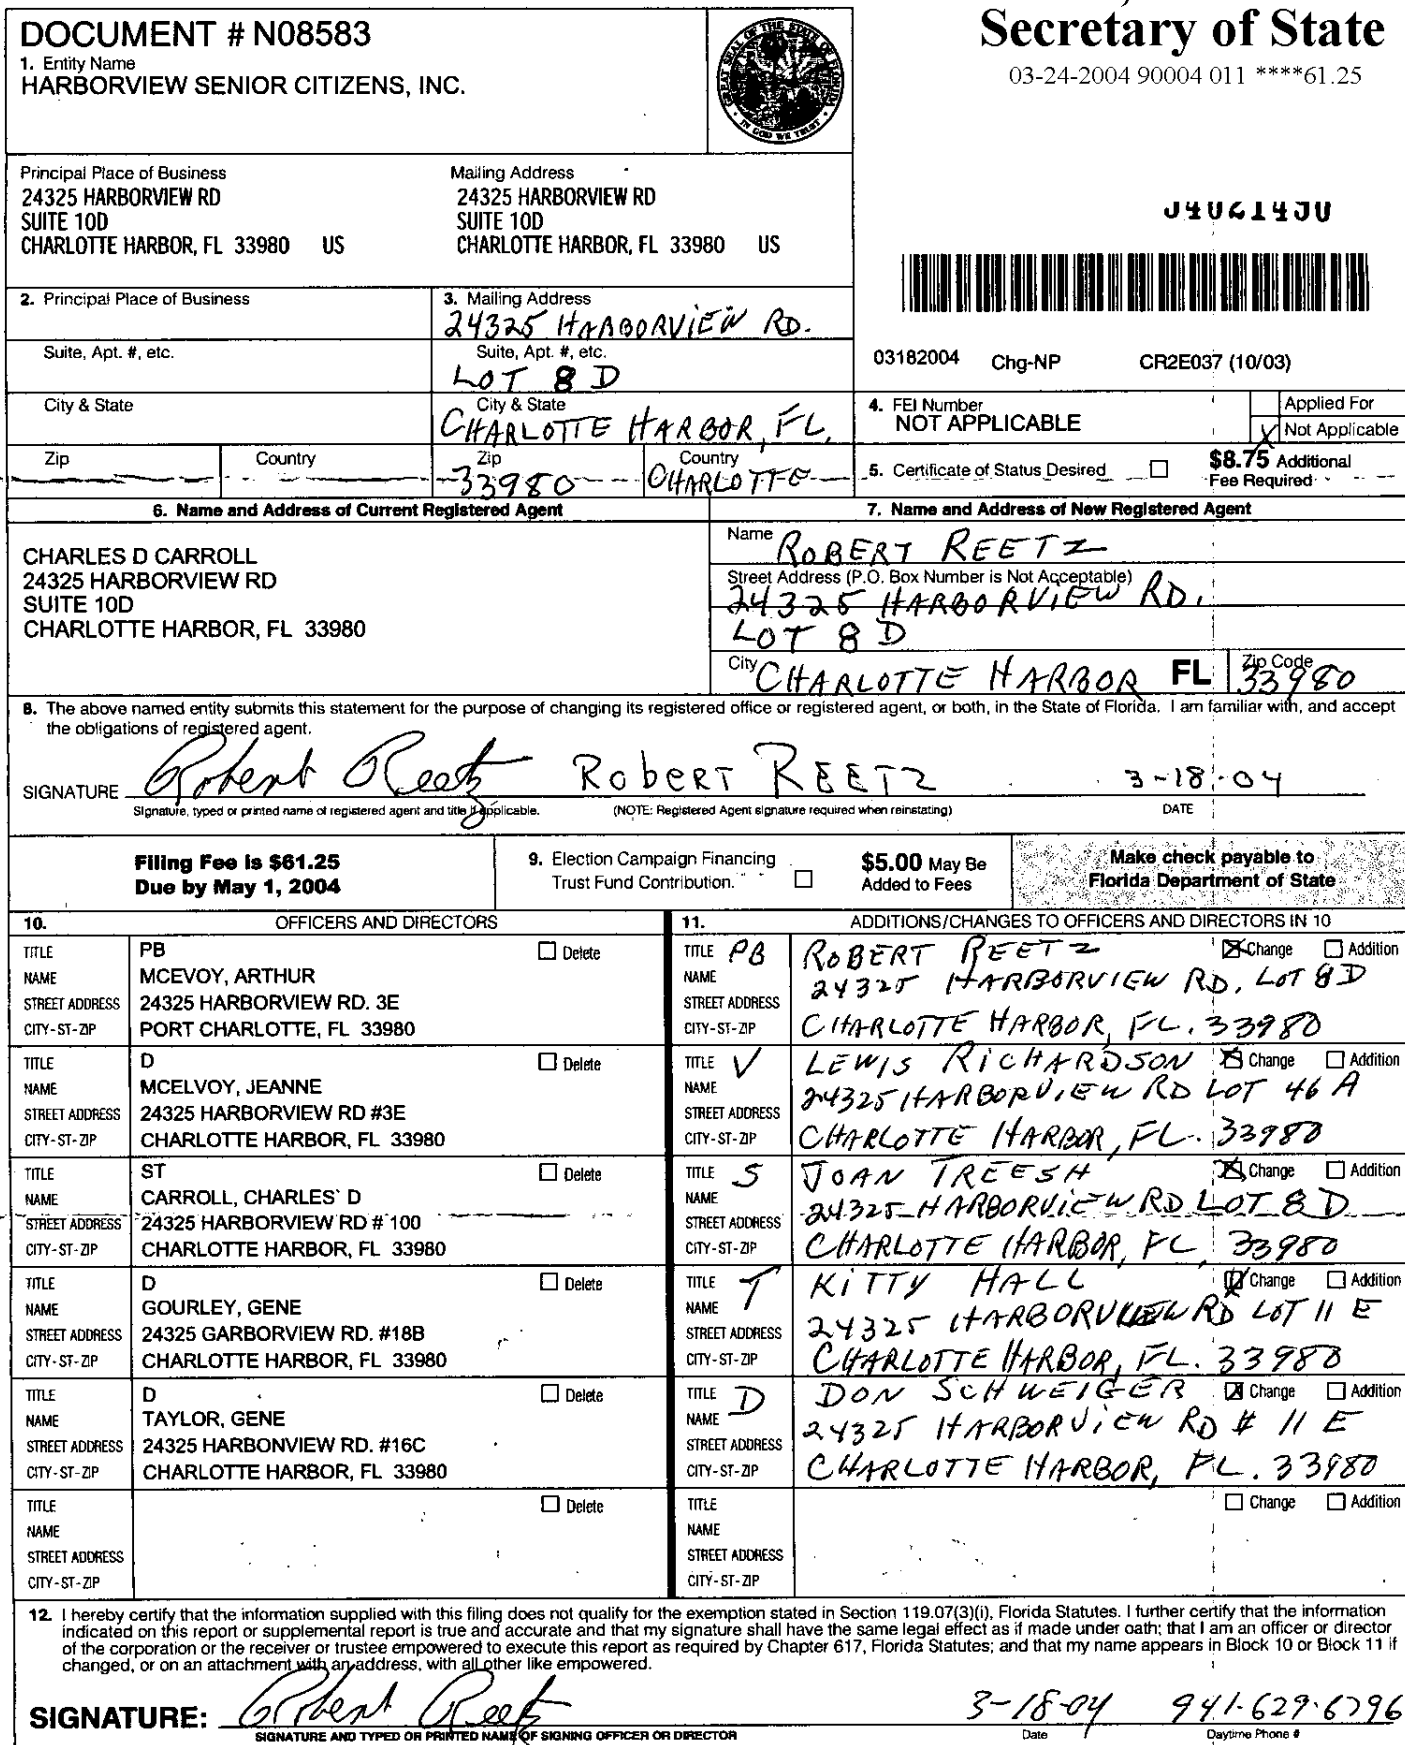 Secretary of State
03-24-2004 90004 011 ****61.25
DOCUMENT # N08583
1. Entity Name
HARBORVIEW SENIOR CITIZENS, INC.
GREAT SEAL OF THE STATE OF FLORIDA
IN GOD WE TRUST
Principal Place of Business
24325 HARBORVIEW RD
SUITE 10D
CHARLOTTE HARBOR, FL 33980 US
Mailing Address
24325 HARBORVIEW RD
SUITE 10D
CHARLOTTE HARBOR, FL 33980 US
2. Principal Place of Business
Suite, Apt. #, etc.
City & State
Zip Country
3. Mailing Address
24325 HARBORVIEW RD.
Suite, Apt. #, etc.
LOT 8 D
City & State
CHARLOTTE HARBOR, FL.
Zip Country
33980 CHARLOTTE
03182004 Chg-NP CR2E037 (10/03)
4. FEI Number
NOT APPLICABLE
Applied For
X Not Applicable
5. Certificate of Status Desired
$8.75 Additional
Fee Required
6. Name and Address of Current Registered Agent
CHARLES D CARROLL
24325 HARBORVIEW RD
SUITE 10D
CHARLOTTE HARBOR, FL 33980
7. Name and Address of New Registered Agent
Name ROBERT REETZ
Street Address (P.O. Box Number is Not Acceptable)
24325 HARBORVIEW RD.
LOT 8 D
City CHARLOTTE HARBOR FL Zip Code 33980
8. The above named entity submits this statement for the purpose of changing its registered office or registered agent, or both, in the State of Florida. I am familiar with, and accept
the obligations of registered agent.
SIGNATURE Robert Reetz RobeRT REETZ 3-18-04
Signature, typed or printed name of registered agent and title if applicable. (NOTE: Registered Agent signature required when reinstating) DATE
Filing Fee is $61.25
Due by May 1, 2004
9. Election Campaign Financing
Trust Fund Contribution.
$5.00 May Be
Added to Fees
Make check payable to
Florida Department of State
10. OFFICERS AND DIRECTORS
TITLE PB Delete
NAME MCEVOY, ARTHUR
STREET ADDRESS 24325 HARBORVIEW RD. 3E
CITY-ST-ZIP PORT CHARLOTTE, FL 33980
TITLE D Delete
NAME MCELVOY, JEANNE
STREET ADDRESS 24325 HARBORVIEW RD #3E
CITY-ST-ZIP CHARLOTTE HARBOR, FL 33980
TITLE ST Delete
NAME CARROLL, CHARLES D
STREET ADDRESS 24325 HARBORVIEW RD # 100
CITY-ST-ZIP CHARLOTTE HARBOR, FL 33980
TITLE D Delete
NAME GOURLEY, GENE
STREET ADDRESS 24325 GARBORVIEW RD. #18B
CITY-ST-ZIP CHARLOTTE HARBOR, FL 33980
TITLE D Delete
NAME TAYLOR, GENE
STREET ADDRESS 24325 HARBONVIEW RD. #16C
CITY-ST-ZIP CHARLOTTE HARBOR, FL 33980
TITLE Delete
NAME
STREET ADDRESS
CITY-ST-ZIP
11. ADDITIONS/CHANGES TO OFFICERS AND DIRECTORS IN 10
TITLE PB ROBERT REETZ X Change Addition
NAME 24325 HARBORVIEW RD. LOT 8 D
STREET ADDRESS
CITY-ST-ZIP CHARLOTTE HARBOR, FL. 33980
TITLE V LEWIS RICHARDSON X Change Addition
NAME 24325 HARBORVIEW RD LOT 46 A
STREET ADDRESS
CITY-ST-ZIP CHARLOTTE HARBOR, FL. 33980
TITLE S JOAN TREESH X Change Addition
NAME 24325 HARBORVIEW RD LOT 8 D
STREET ADDRESS
CITY-ST-ZIP CHARLOTTE HARBOR, FL 33980
TITLE T KITTY HALL X Change Addition
NAME 24325 HARBORVIEW RD LOT 11 E
STREET ADDRESS
CITY-ST-ZIP CHARLOTTE HARBOR, FL. 33980
TITLE D DON SCHWEIGER X Change Addition
NAME 24325 HARBORVIEW RD # 11 E
STREET ADDRESS
CITY-ST-ZIP CHARLOTTE HARBOR, FL. 33980
TITLE Change Addition
NAME
STREET ADDRESS
CITY-ST-ZIP
12. I hereby certify that the information supplied with this filing does not qualify for the exemption stated in Section 119.07(3)(i), Florida Statutes. I further certify that the information
indicated on this report or supplemental report is true and accurate and that my signature shall have the same legal effect as if made under oath; that I am an officer or director
of the corporation or the receiver or trustee empowered to execute this report as required by Chapter 617, Florida Statutes; and that my name appears in Block 10 or Block 11 if
changed, or on an attachment with an address, with all other like empowered.
SIGNATURE: Robert Reetz 3-18-04 941-629-6796
SIGNATURE AND TYPED OR PRINTED NAME OF SIGNING OFFICER OR DIRECTOR Date Daytime Phone #